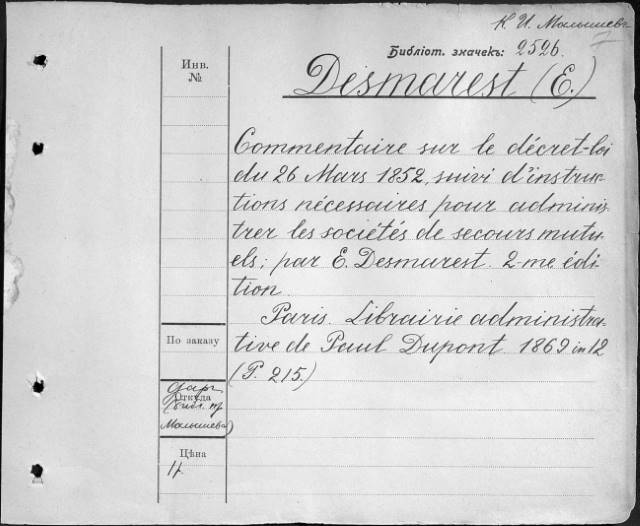 К. И. Малышевъ
7
Библіот. значекъ: 2526.
Инв.
№
Desmarest (E.)
Commentaire sur le décret-loi
du 26 Mars 1852, suivi d'instruc-
tions nécessaires pour adminis-
trer les sociétés de secours mutu-
els; par E. Desmarest. 2-me édi-
tion.
Paris. Librairie administra-
tive de Paul Dupont. 1869 in 12
(P. 215.)
По заказу
даръ
Откуда
(библ. пр
Малышева)
Цѣна